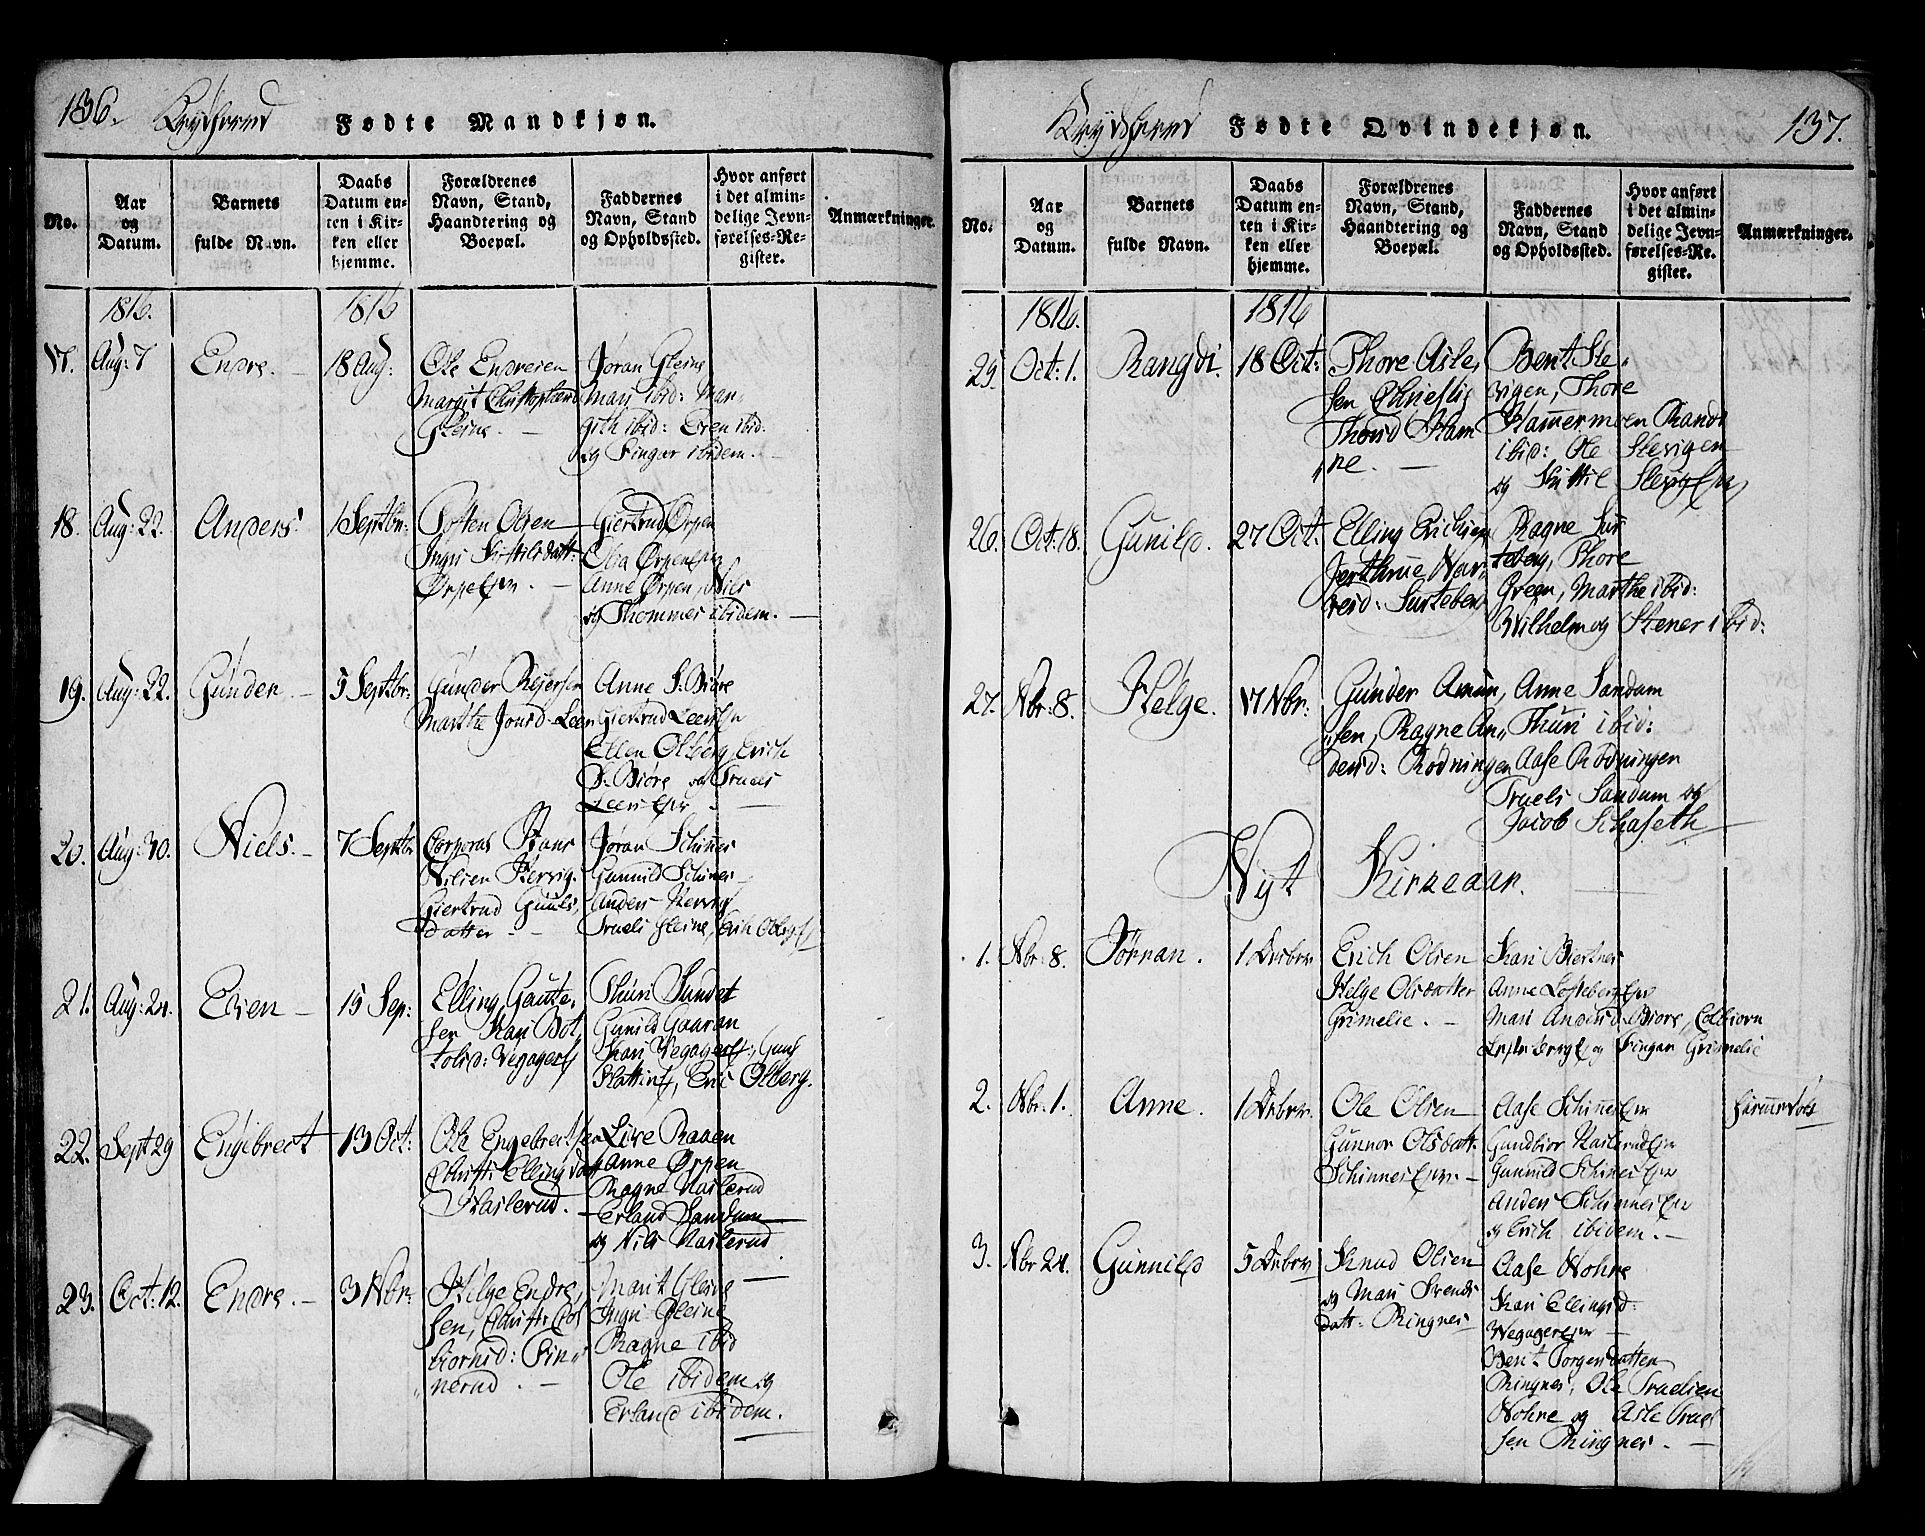 136. Krydsered Fødte Mandkjøn.
No.
Aar og Datum.
Barnets fulde Navn.
Daabs Datum enten i Kirken eller hjemme.
Forældrenes Navn, Stand, Haandtering og Boepæl.
Faddernes Navn, Stand og Opholdssted.
Hvor anført i det almindelige Jevnførelses-Register.
Anmærkninger.
1816. 1816
17. Aug: 7 Endre. 18 Aug:
Ole Endresen
Margit Christophersd
Gleine.
Jøran Gleine
Mari ibid: Mar
gith ibid: Even ibid:
og Fingar ibidem.
18. Aug: 22. Anders 1 Septbr:
Torsten Olsen
Ingri Kittilsdatt:
Ørpen Ejer.
Giertrud Ørpen
Anne Ørpen, Nils
og Thommes ibidem.
19. Aug: 22. Gunder. 5 Septbr:
Gunder Rejersen
Martha Jonsd. Leer
Anne S. Biøre
Giertrud Leers Ejer
Ellen Olberg, Erich
S. Biøre og Truels
Leers Ejer
20. Aug: 30. Niels. 7 Septbr
Corporal Hans
Nilsen Kervig.
Giertrud Guuls
datter
Jøran Schinnes
Gunnild Schinnes
Anders Kervig
Truels Gleine, Erich Olberg
21. Aug: 24. Even 15 Sep:
Elling Gaute,
sen Kari Bot,
tolsd: Vegagers
Thuri Sundet
Gunild Gaaran
Kari Vegagers
Slattins, Eric Olberg.
22. Sept 29 Engebrect 13 Oct:
Ole Engebrectsen
Christi Ellingsdatt
Haslerud.
Live Raaen
Anne Ørpen
Ragne Haslerud
Erland Sandum
og Nils Haslerud
23. Oct: 12. Endre. 3 Nbr:
Helge Endre,
sen, Christi Col
biørnsd: Fin
nerud.
Marit Gleine
Ingri Gleine
Ragne ibid
Ole ibidem og
Erland ibidem.
Krydsered Fødte Qvindekjøn. 137.
No.
Aar og Datum.
Barnets fulde Navn.
Daabs Datum enten i Kirken eller hjemme.
Forældrenes Navn, Stand, Haandtering og Boepæl.
Faddernes Navn, Stand og Opholdssted.
Hvor anført i det almindelige Jevnførelses-Register.
Anmærkninger.
1816. 1816
25. Oct: 1. Rangdi. 18 Oct:
Thore Asle,
sen
Thorsd Ham
re.
Bent Ste,
vigen, Thore
Hamermoen Randi
ibid: Ole Stevigen
og Kittil Stevigen
26. Oct: 18. Gunild. 27 Oct:
Elling Erichsen
Jerthrue Hal
vorsd: Surteberg
Ragne Sur
teberg, Thore
Green, Marthe ibid:
Wilhelm og Stener ibid:
27. Nbr: 8. Helge. 17 Nbr:
Gunder Amun,
sen, Ragne An
dersd: Rødningen
Anne Sandum
Thuri ibid:
Aase Rødningen
Truels Sandum og
Jacob Schaseth
Nyt Kirkeaar.
1. Nbr: 8. Jørnan. 1 Decbr
Erich Olsen
Helge Olsdatter
Grimelie.
Kari Biertnes
Anne Lofteberg Ejer
Mari Andersd Biøre, Colbiørn
og Fingar Grimelie
2. Nbr: 1. Anne. 1 Decbr
Ole Olsen
Gunnor Olsdatt:
Schinnes Ejer
Aase Schinnes Ejer
Gundbior Haslerud Ejer
Gunnild Schinnes Ejer
Anders Schinnes Ejer
og Erich ibidem.
hjemmedøbt
3. Nbr 24. Gunnild 5 Decbr
Knud Olsen
og Mari Svends
datt: Ringnes
Aase Nohre
Kari Ellingsd:
Wegager Ejer
Berit Torgersdatten
Ringnes, Ole Truelsen
Nohre og Asle Truel
sen Ringnes.